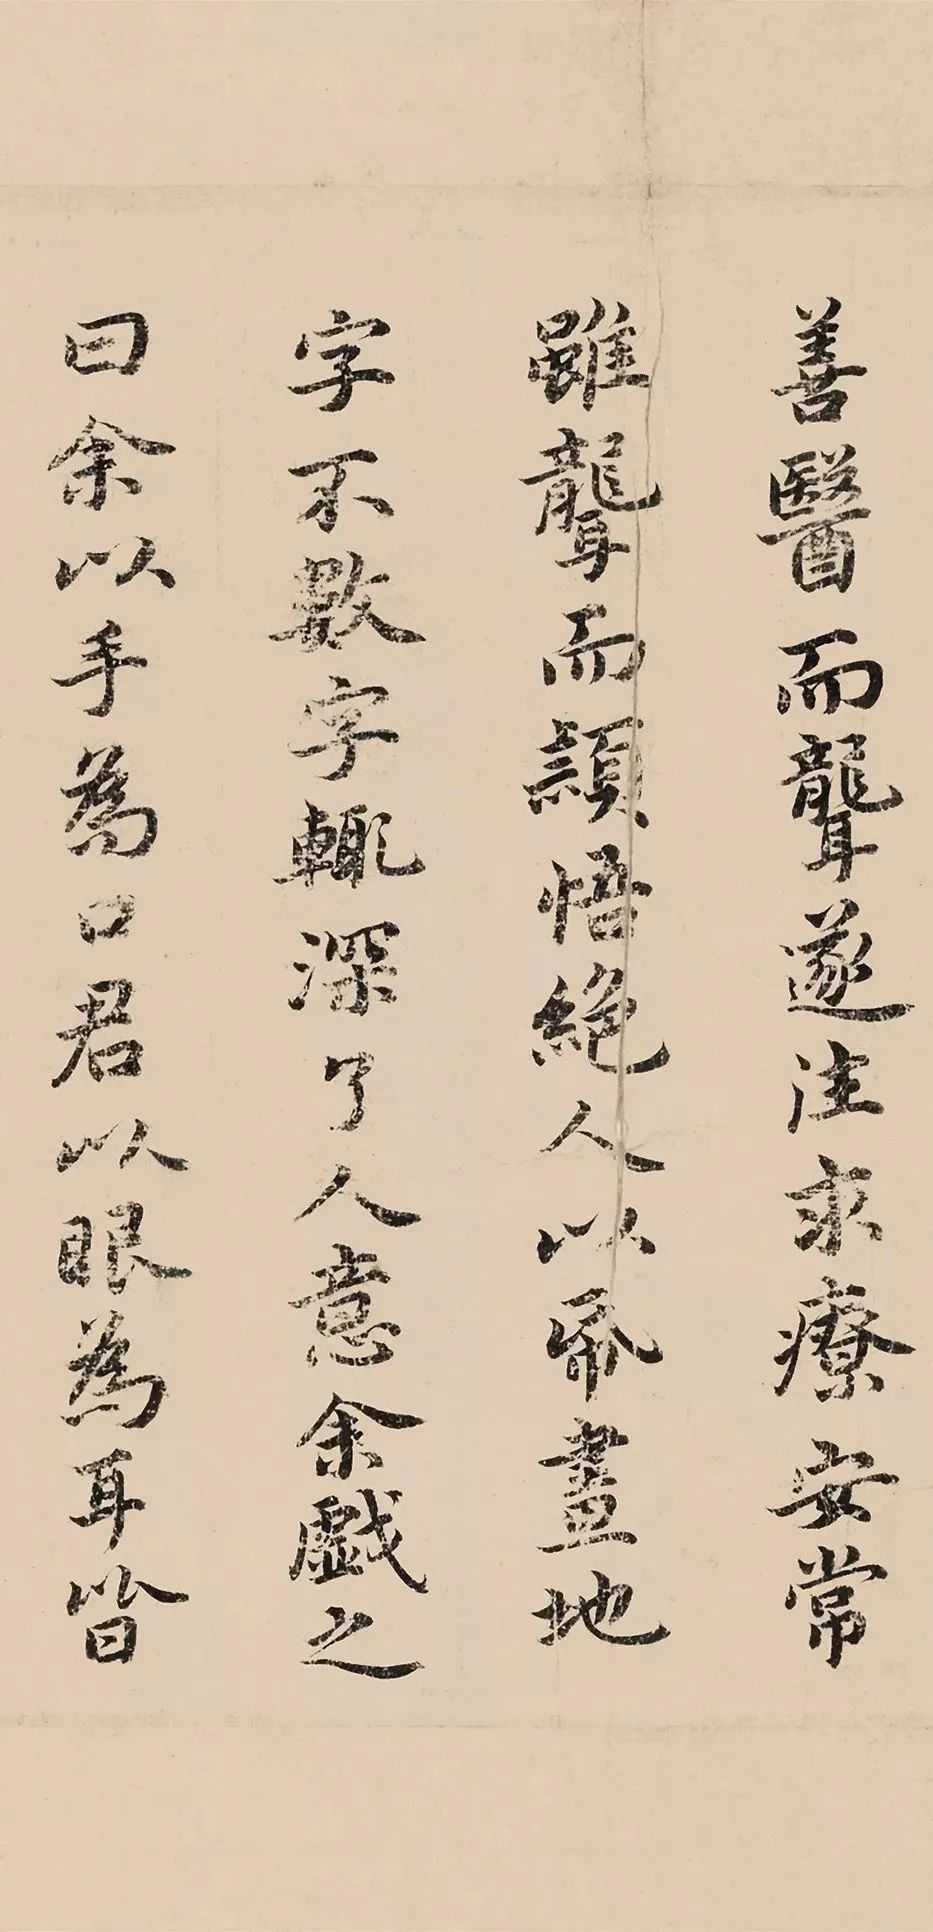 善醫而聾遂往求療安常
雖聾而穎悟絕人以帋畫地
字不數字輒深了人意余戲之
曰余以手為口君以眼為耳皆